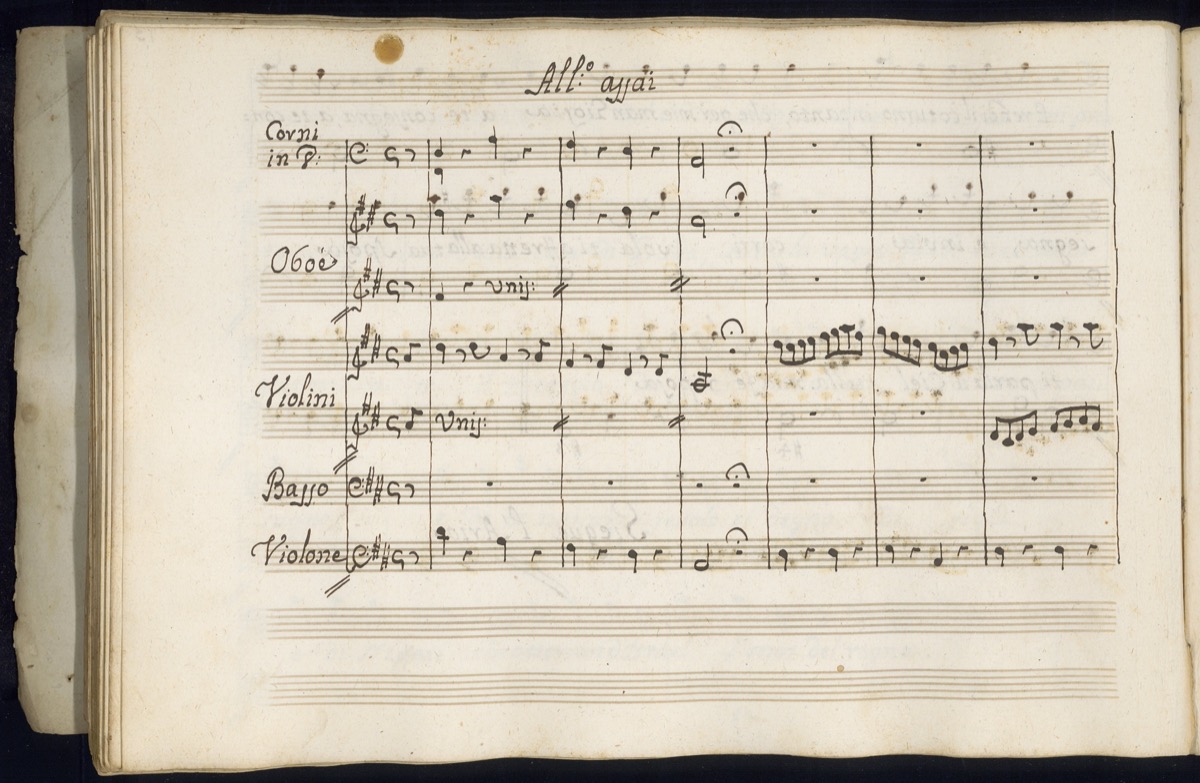 All:º assai
Corni
in D:
Oboè
unis:
Violini
Unis:
Basso
Violone